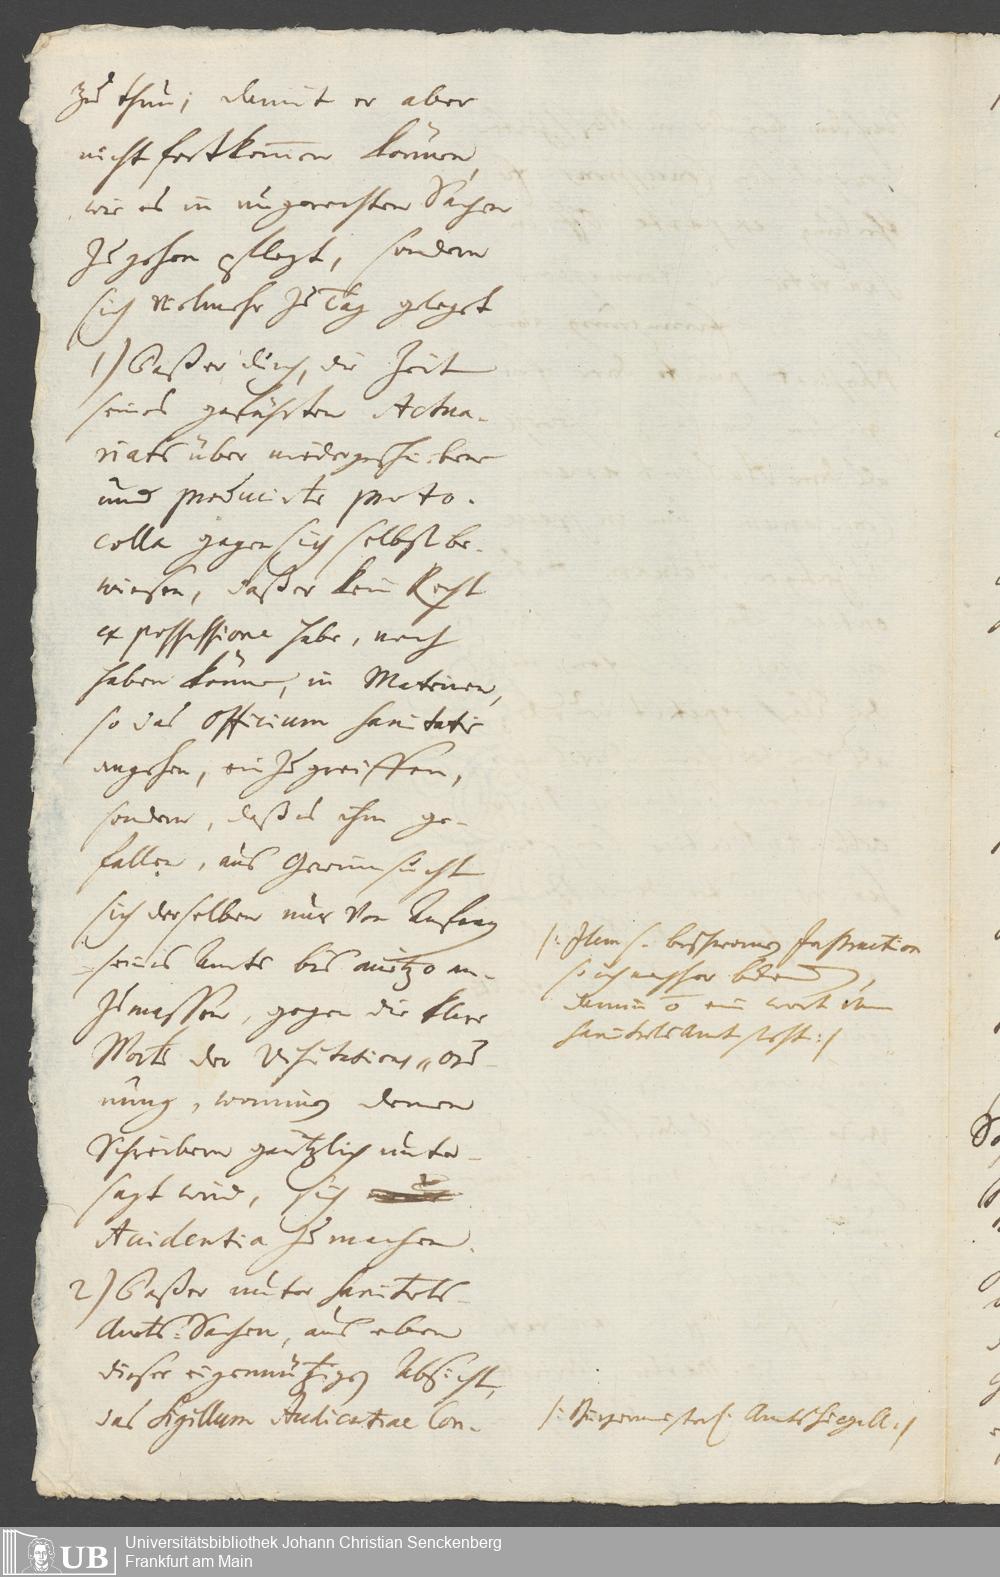 zu thun; damit er aber
nicht fortkom̅en können,
wie es in ungerechten Sachen
zu gehen pflegt, sondern
sich vielmehr zu Tag gelegt
1) Daß er durch, die Zeit
seines geführten Actua-
riats über niedergeschriebene
und producirte proto-
colla gegen sich selbst be-
wiesen, daß er kein Recht
ex possessione habe, noch
haben könne, in Materien,
so das Officium Sanitatis
angehen, ein zu greiffen,
sondern, daß es ihm ge-
fallen, aus Gewinnsucht
sich derselben nur von Anfang
seines Amts bis anitzo an-
zumassen, gegen die klare
Worte der Visitations„Ord-
nung, worinnen denen
Schreibern gäntzlich unter-
sagt wird, sich
Accidentia zu machen.
2) Daß er unter Sanitets-
Amts-Sachen, aus eben
dieser eigennützigen Absicht,
das Sigillum Judicatiae Con-
/: Item s. beschworne Instruction
so ich nachher
darinn ō ein wort vom
Sanitets Amt steht :/
/: Burgermeisterl. Amts Siegill :/
Universitätsbibliothek Johann Christian Senckenberg
Frankfurt am Main
UB